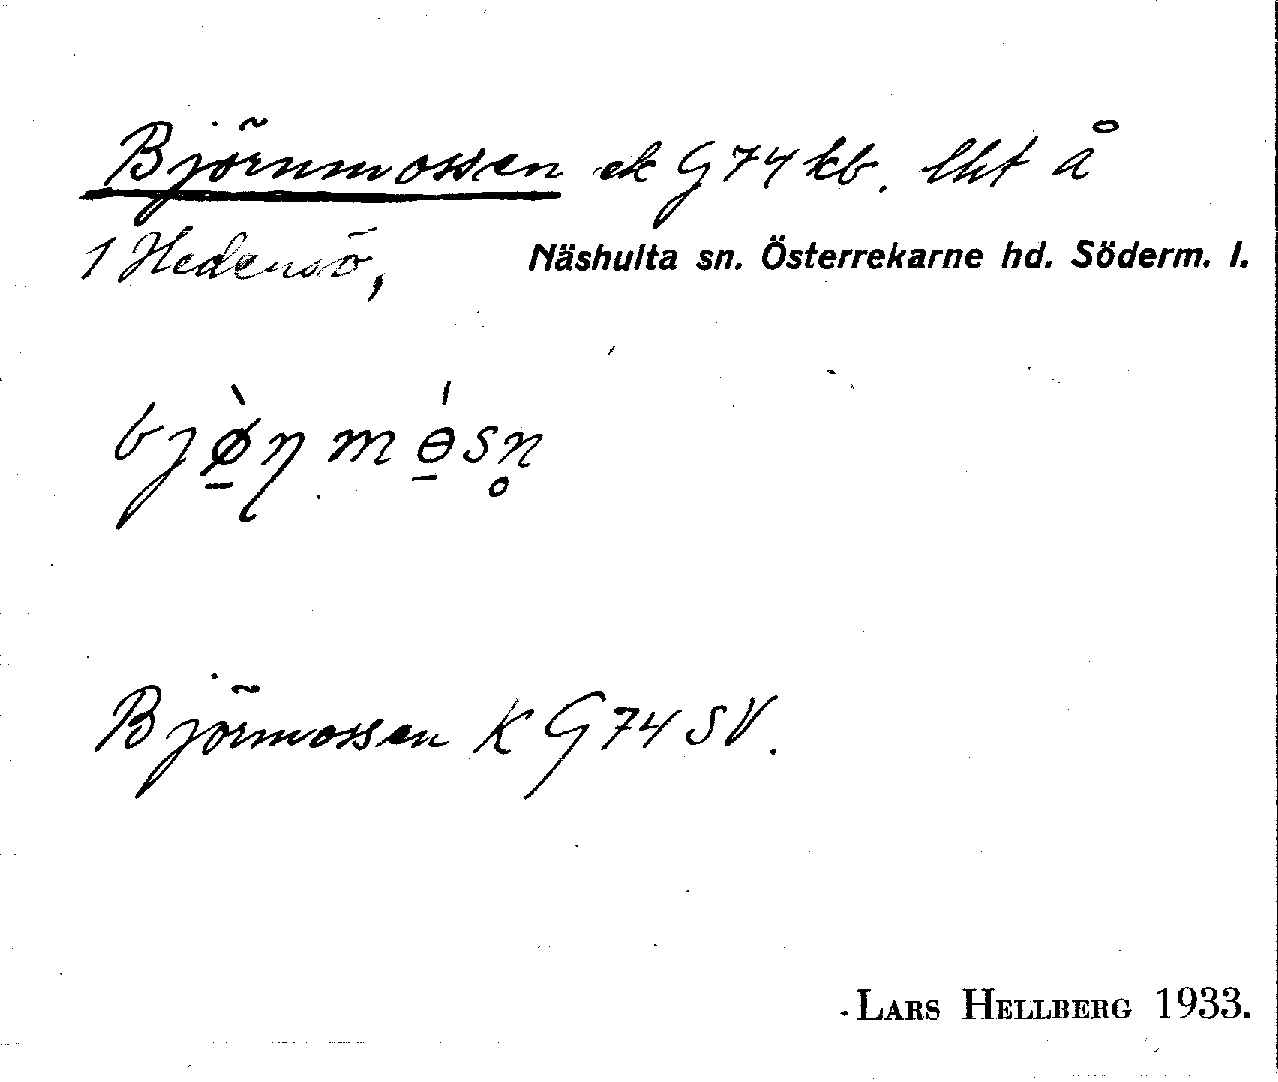 Björnmossen ek G74 kb. lht å
1 Hedensö, Näshulta sn. Österrekarne hd. Söderm. l.
bjø̱̀ɳmɵ̱́sn̥
Björmossen K G74 SV.
LARS HELLBERG 1933.